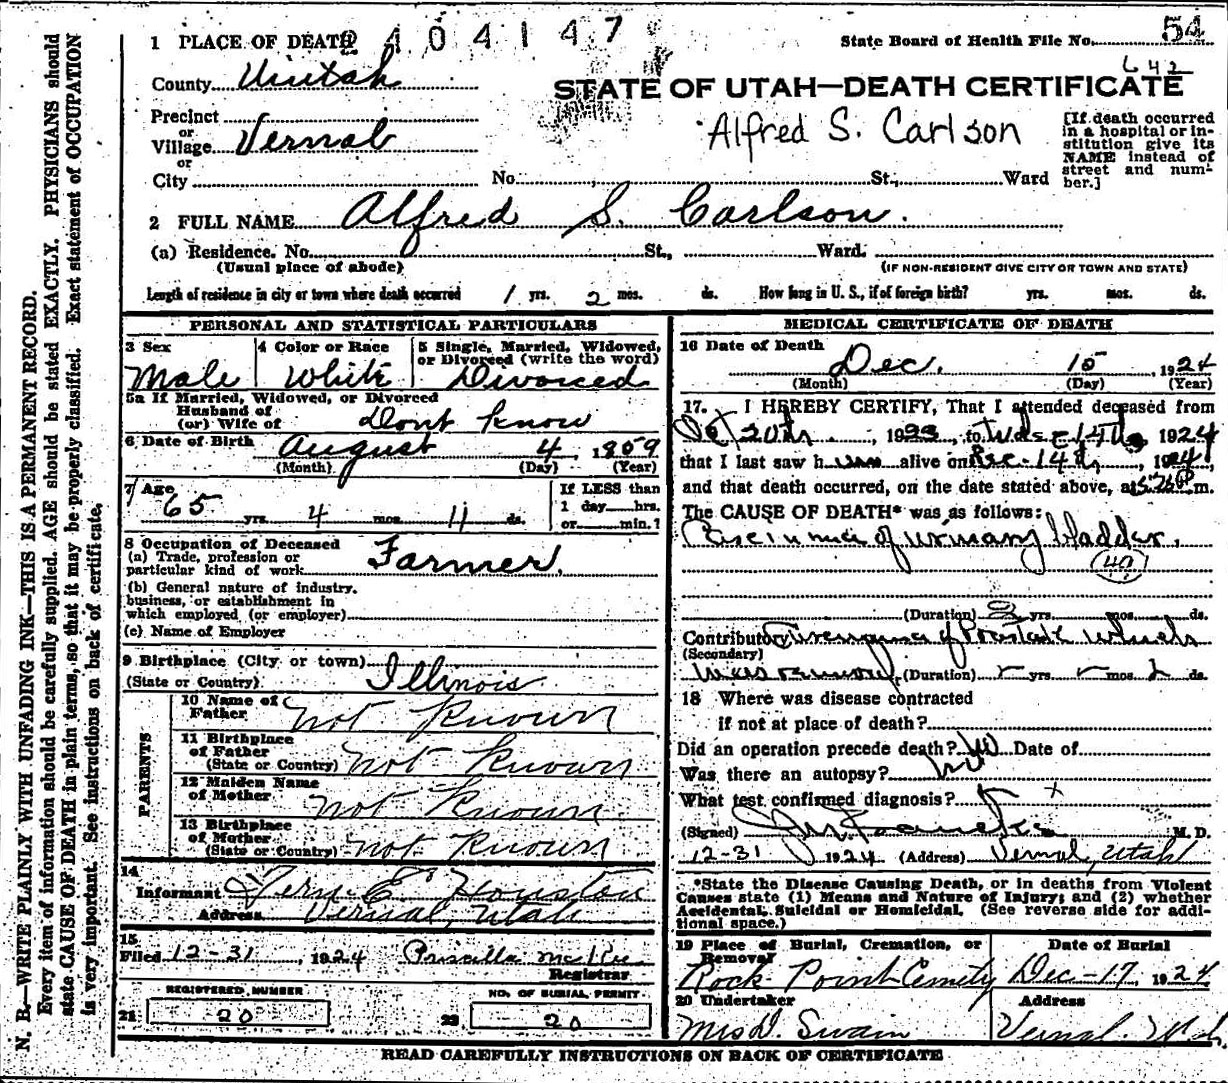 N. B.—WRITE PLAINLY WITH UNFADING INK—THIS IS A PERMANENT RECORD.
Every item of information should be carefully supplied. AGE should be stated EXACTLY. PHYSICIANS should
state CAUSE OF DEATH in plain terms, so that it may be properly classified. Exact statement of OCCUPATION
is very important. See instructions on back of certificate.
2404147
State Board of Health File No. 54
642
STATE OF UTAH—DEATH CERTIFICATE
Alfred S. Carlson
[If death occurred
in a hospital or in-
stitution give its
NAME instead of
street and num-
ber.]
1 PLACE OF DEATH
County Uintah
Precinct
or
Village Vernal
or
City No. St., Ward
2 FULL NAME Alfred S. Carlson.
(a) Residence. No. St., Ward.
(Usual place of abode) (IF NON-RESIDENT GIVE CITY OR TOWN AND STATE)
Length of residence in city or town where death occurred 1 yrs. 2 mos. ds. How long in U. S., if of foreign birth? yrs. mos. ds.
PERSONAL AND STATISTICAL PARTICULARS
3 Sex
Male
4 Color or Race
White
5 Single, Married, Widowed,
or Divorced (write the word)
Divorced
5a If Married, Widowed, or Divorced
Husband of
(or) Wife of Dont Know
6 Date of Birth August 4, 1859
(Month) (Day) (Year)
7 Age
65 yrs. 4 mos. 11 ds.
If LESS than
1 day hrs.
or min.?
8 Occupation of Deceased
(a) Trade, profession or
particular kind of work Farmer.
(b) General nature of industry,
business, or establishment in
which employed (or employer)
(c) Name of Employer
9 Birthplace (City or town)
(State or Country) Illinois
PARENTS
10 Name of
Father not Known
11 Birthplace
of Father
(State or Country) not Known
12 Maiden Name
of Mother not Known
13 Birthplace
of Mother
(State or Country) not Known
14
Informant Vern E. Houston
Address Vernal, Utah
15
Filed 12-31, 1924 Priscilla McKee
Registrar
REGISTERED NUMBER
21 20
NO. OF BURIAL PERMIT
22 20
MEDICAL CERTIFICATE OF DEATH
16 Date of Death
Dec. 15, 1924
(Month) (Day) (Year)
17. I HEREBY CERTIFY, That I attended deceased from
Oct 20th, 1923, to 14th 1924
that I last saw him alive on Dec-14th, 1924
and that death occurred, on the date stated above, at m.
The CAUSE OF DEATH* was as follows:
Carcinoma of urinary bladder.
(49)
(Duration) 2 yrs. mos. ds.
Contributory of Prostate
(Secondary)
(Duration) yrs. mos. ds.
18 Where was disease contracted
if not at place of death?
Did an operation precede death? No Date of
Was there an autopsy? No
What test confirmed diagnosis? x
(Signed) M. D.
12-31 1924 (Address) Vernal, Utah
*State the Disease Causing Death, or in deaths from Violent
Causes state (1) Means and Nature of Injury; and (2) whether
Accidental, Suicidal or Homicidal. (See reverse side for addi-
tional space.)
19 Place of Burial, Cremation, or
Removal
Rock Point Cemity
Date of Burial
Dec-17, 1924
20 Undertaker
Mrs D. Swain
Address
Vernal. Utah.
READ CAREFULLY INSTRUCTIONS ON BACK OF CERTIFICATE